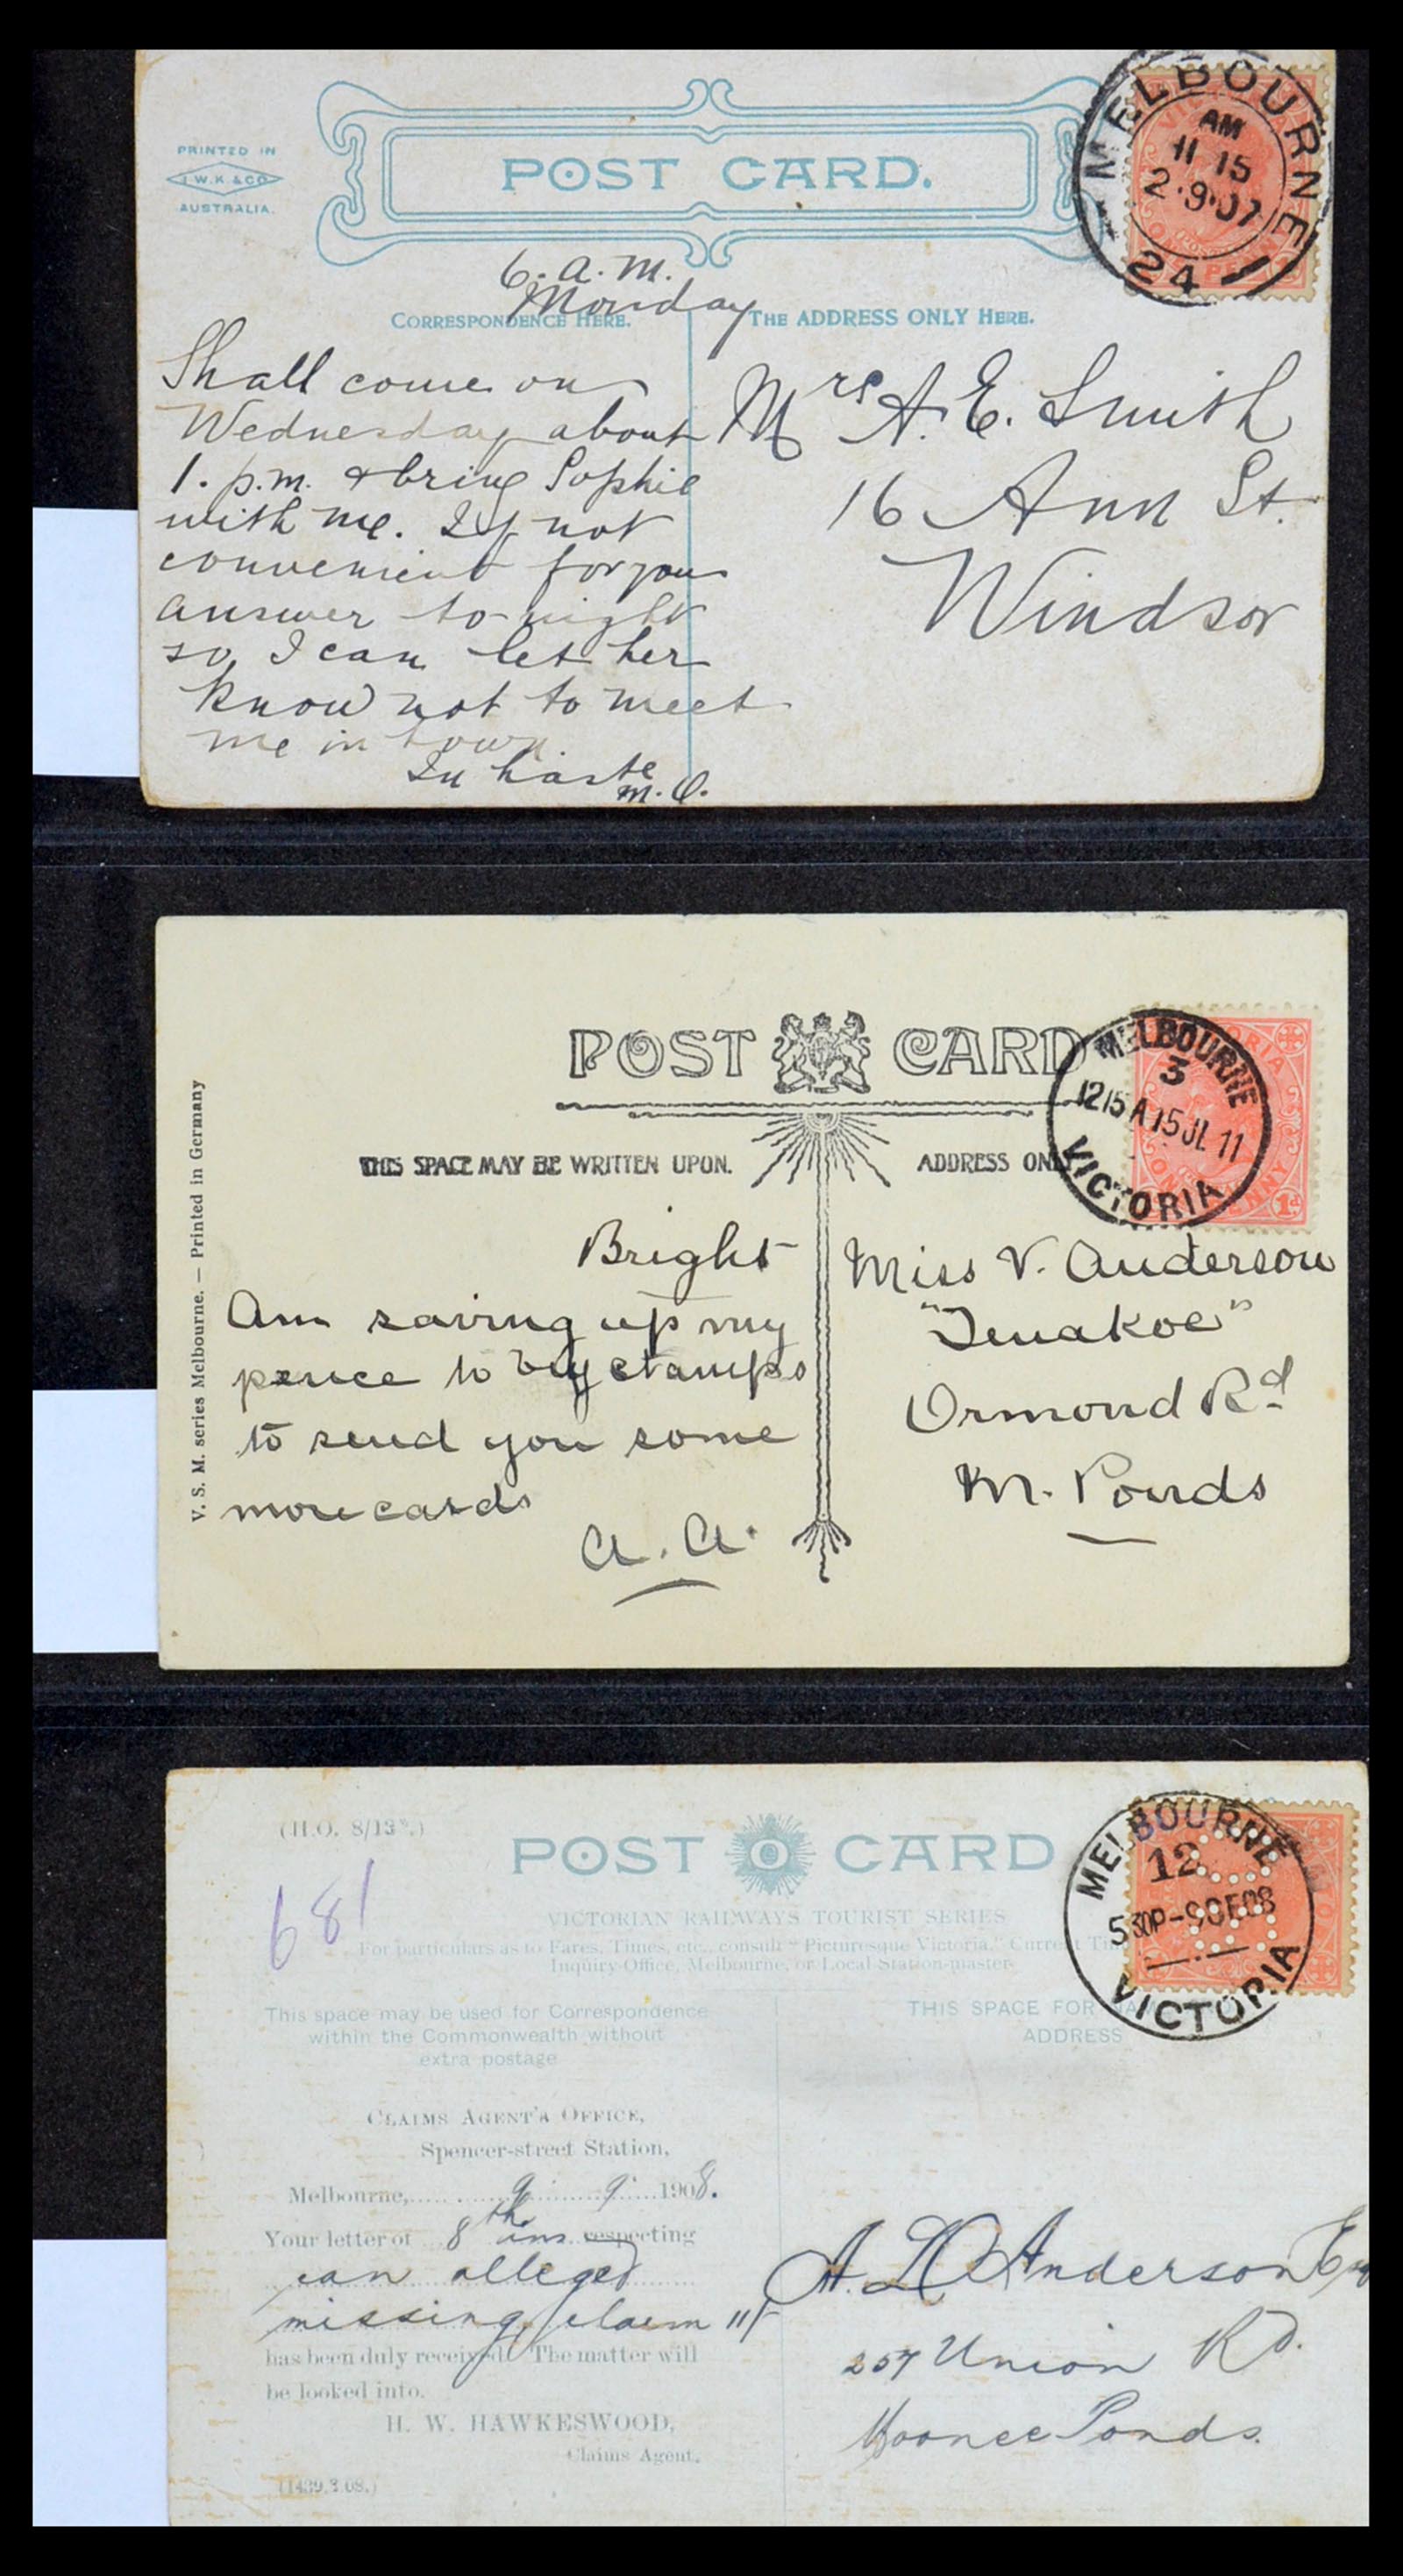 PRINTED IN
J.W.K. & CO
AUSTRALIA.
POST CARD.
MELBOURNE
AM
11 15
2·9·07
24
6. a. m.
Monday
CORRESPONDENCE HERE.
THE ADDRESS ONLY HERE.
Shall come on
Wednesday about
1. p.m. & bring Sophie
with me. If not
convenient for you
answer to-night
so I can let her
know not to meet
me in town.
In haste
M. O.
Mrs A. E. Smith
16 Ann St.
Windsor
POST CARD
MELBOURNE
3
1215 A 15 JL 11
VICTORIA
THIS SPACE MAY BE WRITTEN UPON.
ADDRESS ONLY
V. S. M. series Melbourne. — Printed in Germany
Bright
Am saving up my
pence to buy stamps
to send you some
more cards
A. A.
Miss V. Anderson
"Tenakoe"
Ormond Rd
M. Ponds
(H.O. 8/13
681
POST CARD
MELBOURNE
12
530P-9SE08
VICTORIA
VICTORIAN RAILWAYS TOURIST SERIES
For particulars as to Fares, Times, etc., consult "Picturesque Victoria," Current
Inquiry Office, Melbourne, or Local Station-master
This space may be used for Correspondence
within the Commonwealth without
extra postage
THIS SPACE FOR
ADDRESS
CLAIMS AGENT'S OFFICE,
Spencer-street Station,
Melbourne, 9 9 1908.
Your letter of 8th ins respecting
an alleged
missing claim
has been duly received. The matter will
be looked into.
H. W. HAWKESWOOD,
Claims Agent.
(1439.3.08.)
A. L. Anderson Esq
257 Union Rd.
Moonee Ponds.